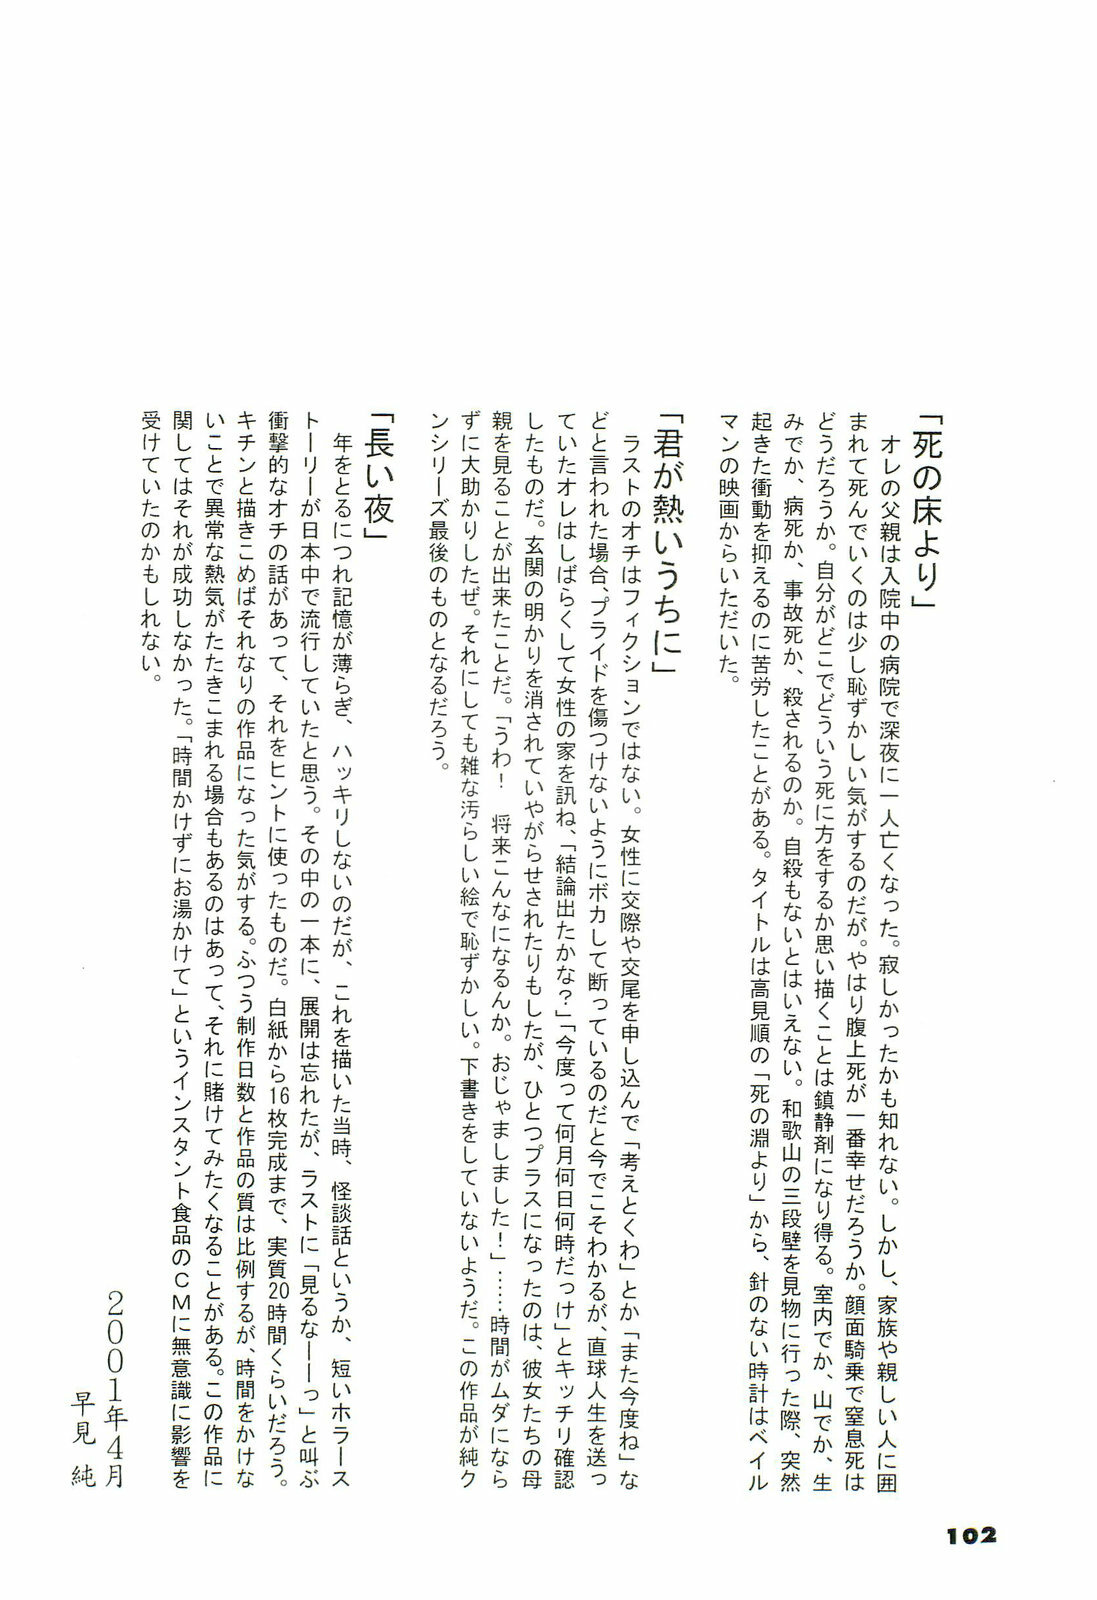 「死の床より」
　オレの父親は入院中の病院で深夜に一人亡くなった。寂しかったかも知れない。しかし、家族や親しい人に囲
まれて死んでいくのは少し恥ずかしい気がするのだが。やはり腹上死が一番幸せだろうか。顔面騎乗で窒息死は
どうだろうか。自分がどこでどういう死に方をするか思い描くことは鎮静剤になり得る。室内でか、山でか、生
みでか、病死か、事故死か、殺されるのか。自殺もないとはいえない。和歌山の三段壁を見物に行った際、突然
起きた衝動を抑えるのに苦労したことがある。タイトルは高見順の「死の淵より」から、針のない時計はベイル
マンの映画からいただいた。
「君が熱いうちに」
　ラストのオチはフィクションではない。女性に交際や交尾を申し込んで「考えとくわ」とか「また今度ね」な
どと言われた場合、プライドを傷つけないようにボカして断っているのだと今でこそわかるが、直球人生を送っ
ていたオレはしばらくして女性の家を訊ね、「結論出たかな？」「今度って何月何日何時だっけ」とキッチリ確認
したものだ。玄関の明かりを消されていやがらせされたりもしたが、ひとつプラスになったのは、彼女たちの母
親を見ることが出来たことだ。「うわ！　将来こんなになるんか。おじゃましました！」……時間がムダになら
ずに大助かりしたぜ。それにしても雑な汚らしい絵で恥ずかしい。下書きをしていないようだ。この作品が純ク
ンシリーズ最後のものとなるだろう。
「長い夜」
　年をとるにつれ記憶が薄らぎ、ハッキリしないのだが、これを描いた当時、怪談話というか、短いホラース
トーリーが日本中で流行していたと思う。その中の一本に、展開は忘れたが、ラストに「見るな――っ」と叫ぶ
衝撃的なオチの話があって、それをヒントに使ったものだ。白紙から16枚完成まで、実質20時間くらいだろう。
キチンと描きこめばそれなりの作品になった気がする。ふつう制作日数と作品の質は比例するが、時間をかけな
いことで異常な熱気がたたきこまれる場合もあるのはあって、それに賭けてみたくなることがある。この作品に
関してはそれが成功しなかった。「時間かけずにお湯かけて」というインスタント食品のＣＭに無意識に影響を
受けていたのかもしれない。
２００１年４月
早見　純
102